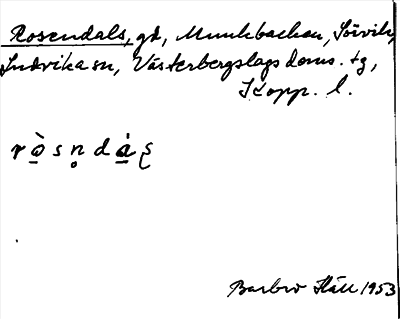 Rosendals, gd, Munkbackan, Sörvik,
Ludvika sn, Västerbergslags doms. tg,
Kopp. l.
Barbro Häll 1953